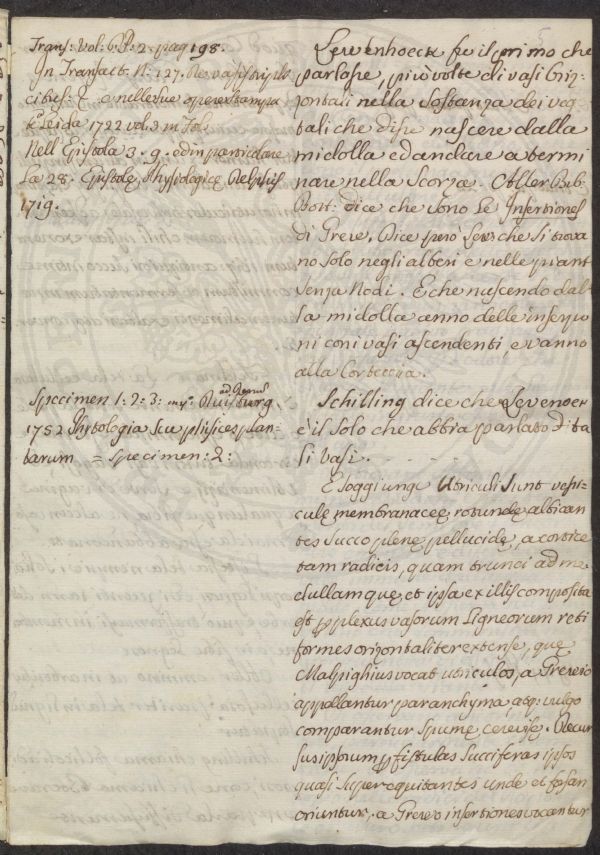 Trans: Vol: 6. P: 2. pag 198.
In Transact. N: 127. De vasis
cibus: & nelle sue opere stampa
Leida 1722 vol. 3 in Fol:
Nell' Epistola 3. 9. ed in particolare
La 28. Epistolę Physiologicę Delphis
1719.
Lewenhoeck fu il primo che
parlasse, più volte di vasi Oriz-
zontali nella sostanza dei veg
tali che disse nascere dalla
midolla ed andare a termi
nare nella Scorza. Aller
dice che sono le Insertiones
di Greve. Dice però Lew: che si trova
no solo negli alberi e nelle piant
senza Nodi. E che nascendo dal
la midolla anno delle inserzio
ni coni vasi ascendenti, e vanno
alla Corteccia.
Specimen 1: 2: 3: Ruisburg
1752 Phytologia seu phisices plan-
tarum = Specimen: 2:
Schilling dice che Levenoec
è il Solo che abbia parlato di ta
li Vasi.
E soggiunge Utriculi sunt vesi-
culę membranaceę, rotundę, albican
tes succo plenę pellucidę, a cortice
tam radicis, quam trunci ad me
dullamque, et ipsa ex illis composita
est p plexus vasorum Ligneorum reti
formes orizontaliter extensę, quę
Malpighius vocat utriculos, a Grewio
appellantur paranchyma, atq: vulgo
comparantur Spumę cerevisę. Decur
sus ipsorum p fistulas succiferas ipsos
quasi superequitantes unde et
oriuntur, a Grewo insertiones vocantur